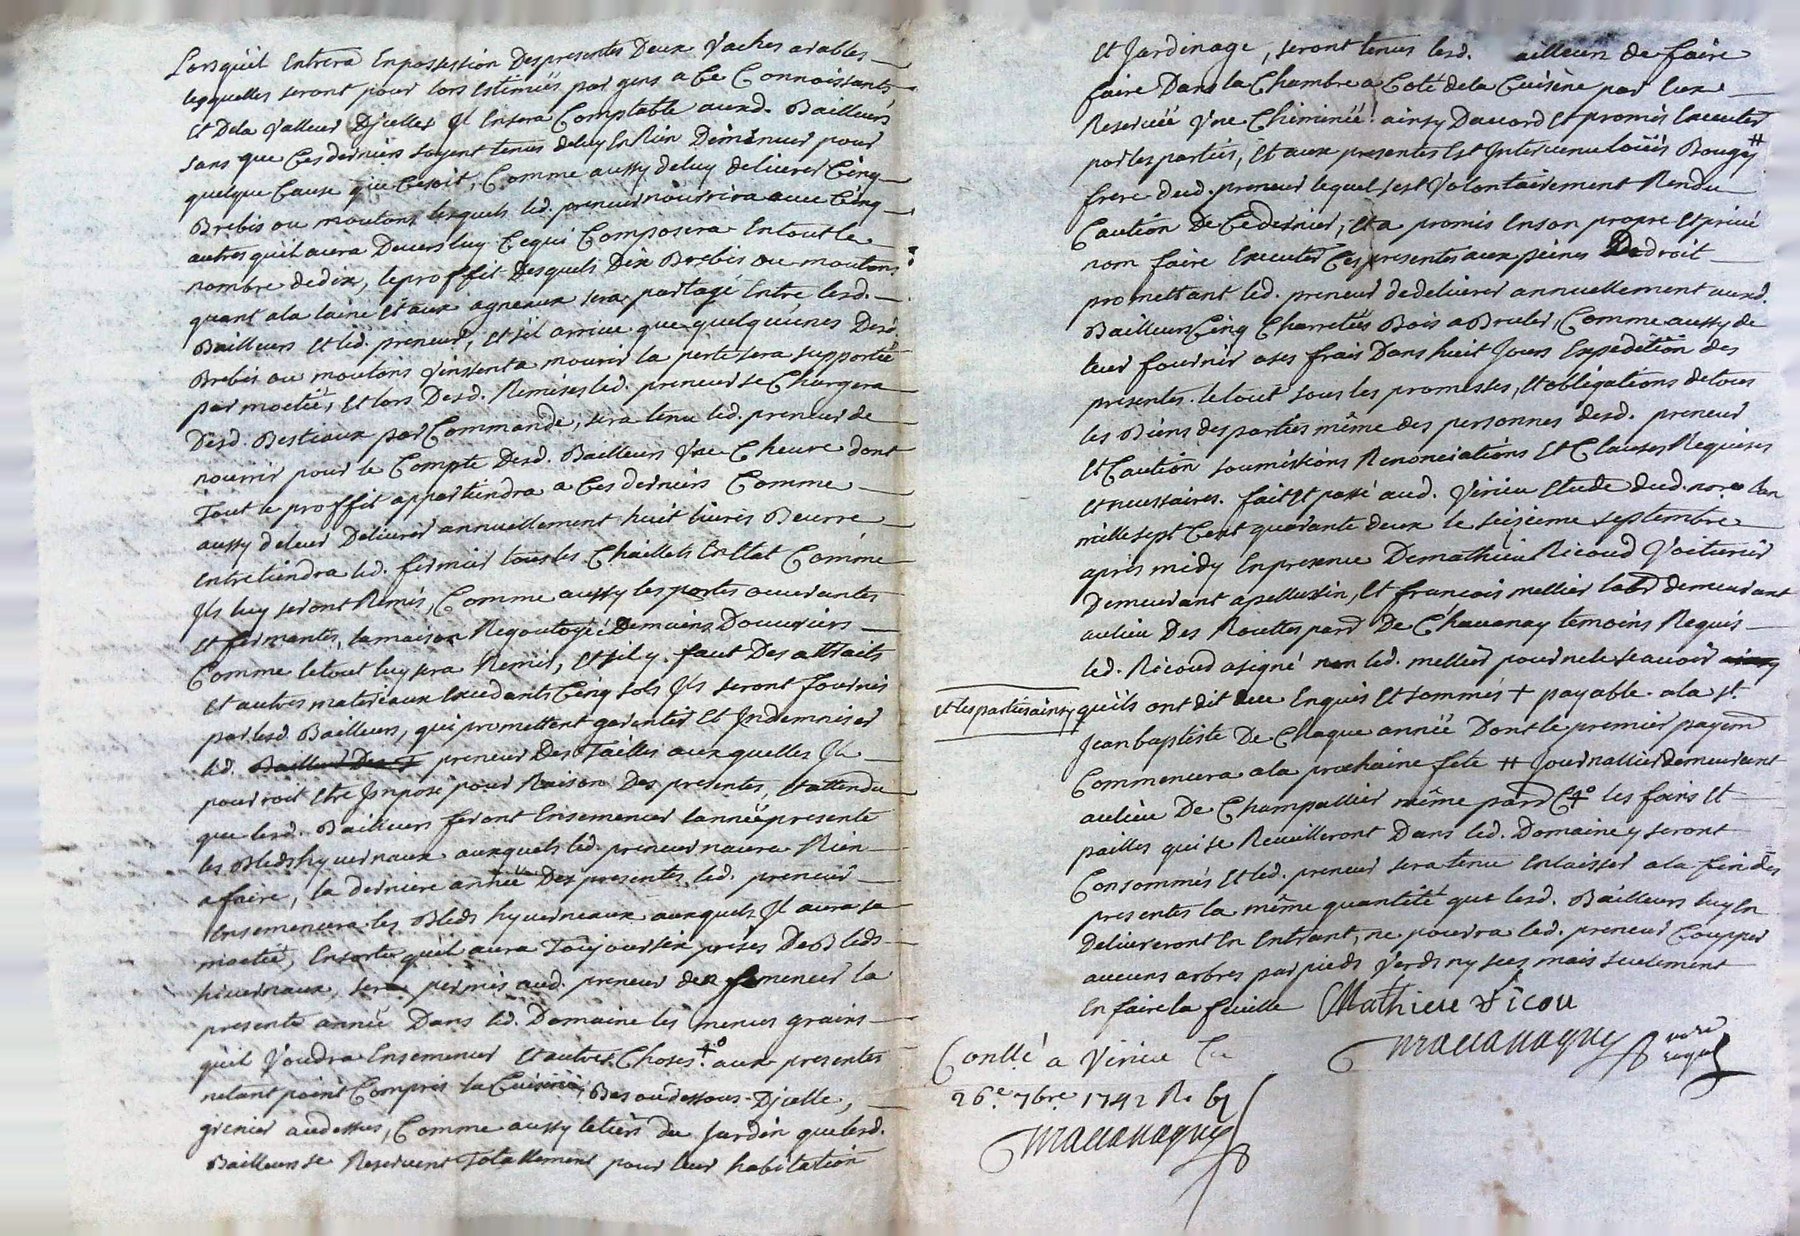 Lorsquil Entrera En possession Des presentes Deux Vaches arables
lesquelles seront pour lors Estimeës par gens a Ce Connoissants
Et Dela Valleur Djcelles Jl Ensera Comptable auxd. Bailleurs
sans que Ces derniers soyent tenus deluy En Rien Diminuer pour
quelque Cause que Cesoit, Comme aussy deluy deliurer Cinq
Brebis ou moutons lesquels led. preneur nourrira auec Cinq
autres quil aura Deuers luy Cequi Composera Entout le
nombre dedix, le proffit Desquels Dix Brebis ou moutons
quant a la laine Et aux agneaux sera partagé Entre lesd.
Bailleurs Et led. preneur, Et sil arriue que quelquunes Desd.
Brebis ou moutons Vinssent a mourir la perte sera supportéë
par moetié, Et lors Desd. Remises led. preneur se Chargera
Desd. Bestiaux par Commande, sera tenu led. preneur de
nourrir pour le Compte Desd. Bailleurs Vne Cheure dont
Tout le proffit appartiendra a Ces derniers Comme
aussy deleur Deliurer annuellement huit liures Beurre
Entretiendra led. fermier tous les Chaillets En Etat Comme
Jls luy seront Remis, Comme aussy les portes ouurantes
Et fermantes, la maison Regoutoyéë Demains Douuriers
Comme le tout luy sera Remis, Et sil y faut Des attraits
Et autres materiaux Excedants Cinq sols Jls seront fournis
par lesd. Bailleurs, qui promettent garentir Et Jndemniser
led. preneur Des Tailles aux quelles Jl
pourroit Etre Jnposé pour Raison Des presentes, Et attendu
que lesd. Bailleurs feront Ensemencer l'annéë presente
les Bleds hyuernaux auxquels led. preneur naura Rien
a faire, la derniere annéë Des presentes led. preneur
Ensemencera les Bleds hyuerneaux auxquels Jl aura sa
moetié, Ensorte quil aura Toujours six prises De Bleds
hiuernaux, sera permis aud. preneur de semencer la
presente annéë Dans led. Domaine les menus grains
quil Voudra Ensemencer Et autres Choses aux presentes
netant point Compris la Cuisine, Bas oudessous Djcelle,
grenier audessus, Comme aussy le tiers du Jardin que lesd.
Bailleurs se Reseruent Totallement pour leur habitation
Et Jardinage, seront tenus lesd. ailleurs de faire
faire Dans la Chambre a Coté dela Cuisine par Eux
Reseruéë Vne Chiminéë ainsy Daccord Et promis Executer
par les parties, Et aux presentes Est Jnteruenu loüis Bougy #
frere dud. preneur lequel sest Volontairement Rendu
Caution De Cedernier, Et a promis Enson propre Et priué
nom faire Executer Ces presentes aux peines De droit
promettant led. preneur dedeliurer annuellement auxd.
Bailleurs Cinq Charretéës Bois a Bruler, Comme aussy de
leur fournir a ses frais Dans huit Jours Expedition des
presentes. le tout sous les promesses, Et obligations detous
les Biens des parties même des personnes desd. preneur
Et Caution soumissions Renonciations Et Clauses Requises
Et necessaires. fait Et passé aud. Virieu Etude dud. no.re Lan
mille sept Cent quarante deux le seizieme septembre
apres midy En presence De mathieu Ricoud Voiturier
Demeurant apellussin, Et francois mellier labr demeurant
au lieu Des Routtes parr De Chauanay temoins Requis
led. Ricoud a signé non led. mellier pour ne le scauoir
Et les parties ainsy
quils ont dit Enquis Et sommés + payable. ala st.
Jean baptiste De Chaque annéë Dont le premier payemt
Commencera a la prochaine fete # Journallier demeurant
au lieu De Champallier même parr les foins Et
pailles qui se Receuilleront Dans led. Domaine y seront
Consommés Et led. preneur sera tenu Enlaisser a la fin des
presentes la même quantité que lesd. Bailleurs luy En
Deliureront En Entrant, ne pourra led. preneur Coupper
aucuns arbres par pieds Verds ny secs mais seulement
En faire la feuille Mathieu Ricou
Contlé a Virieu Le
26.e 7bre 1742